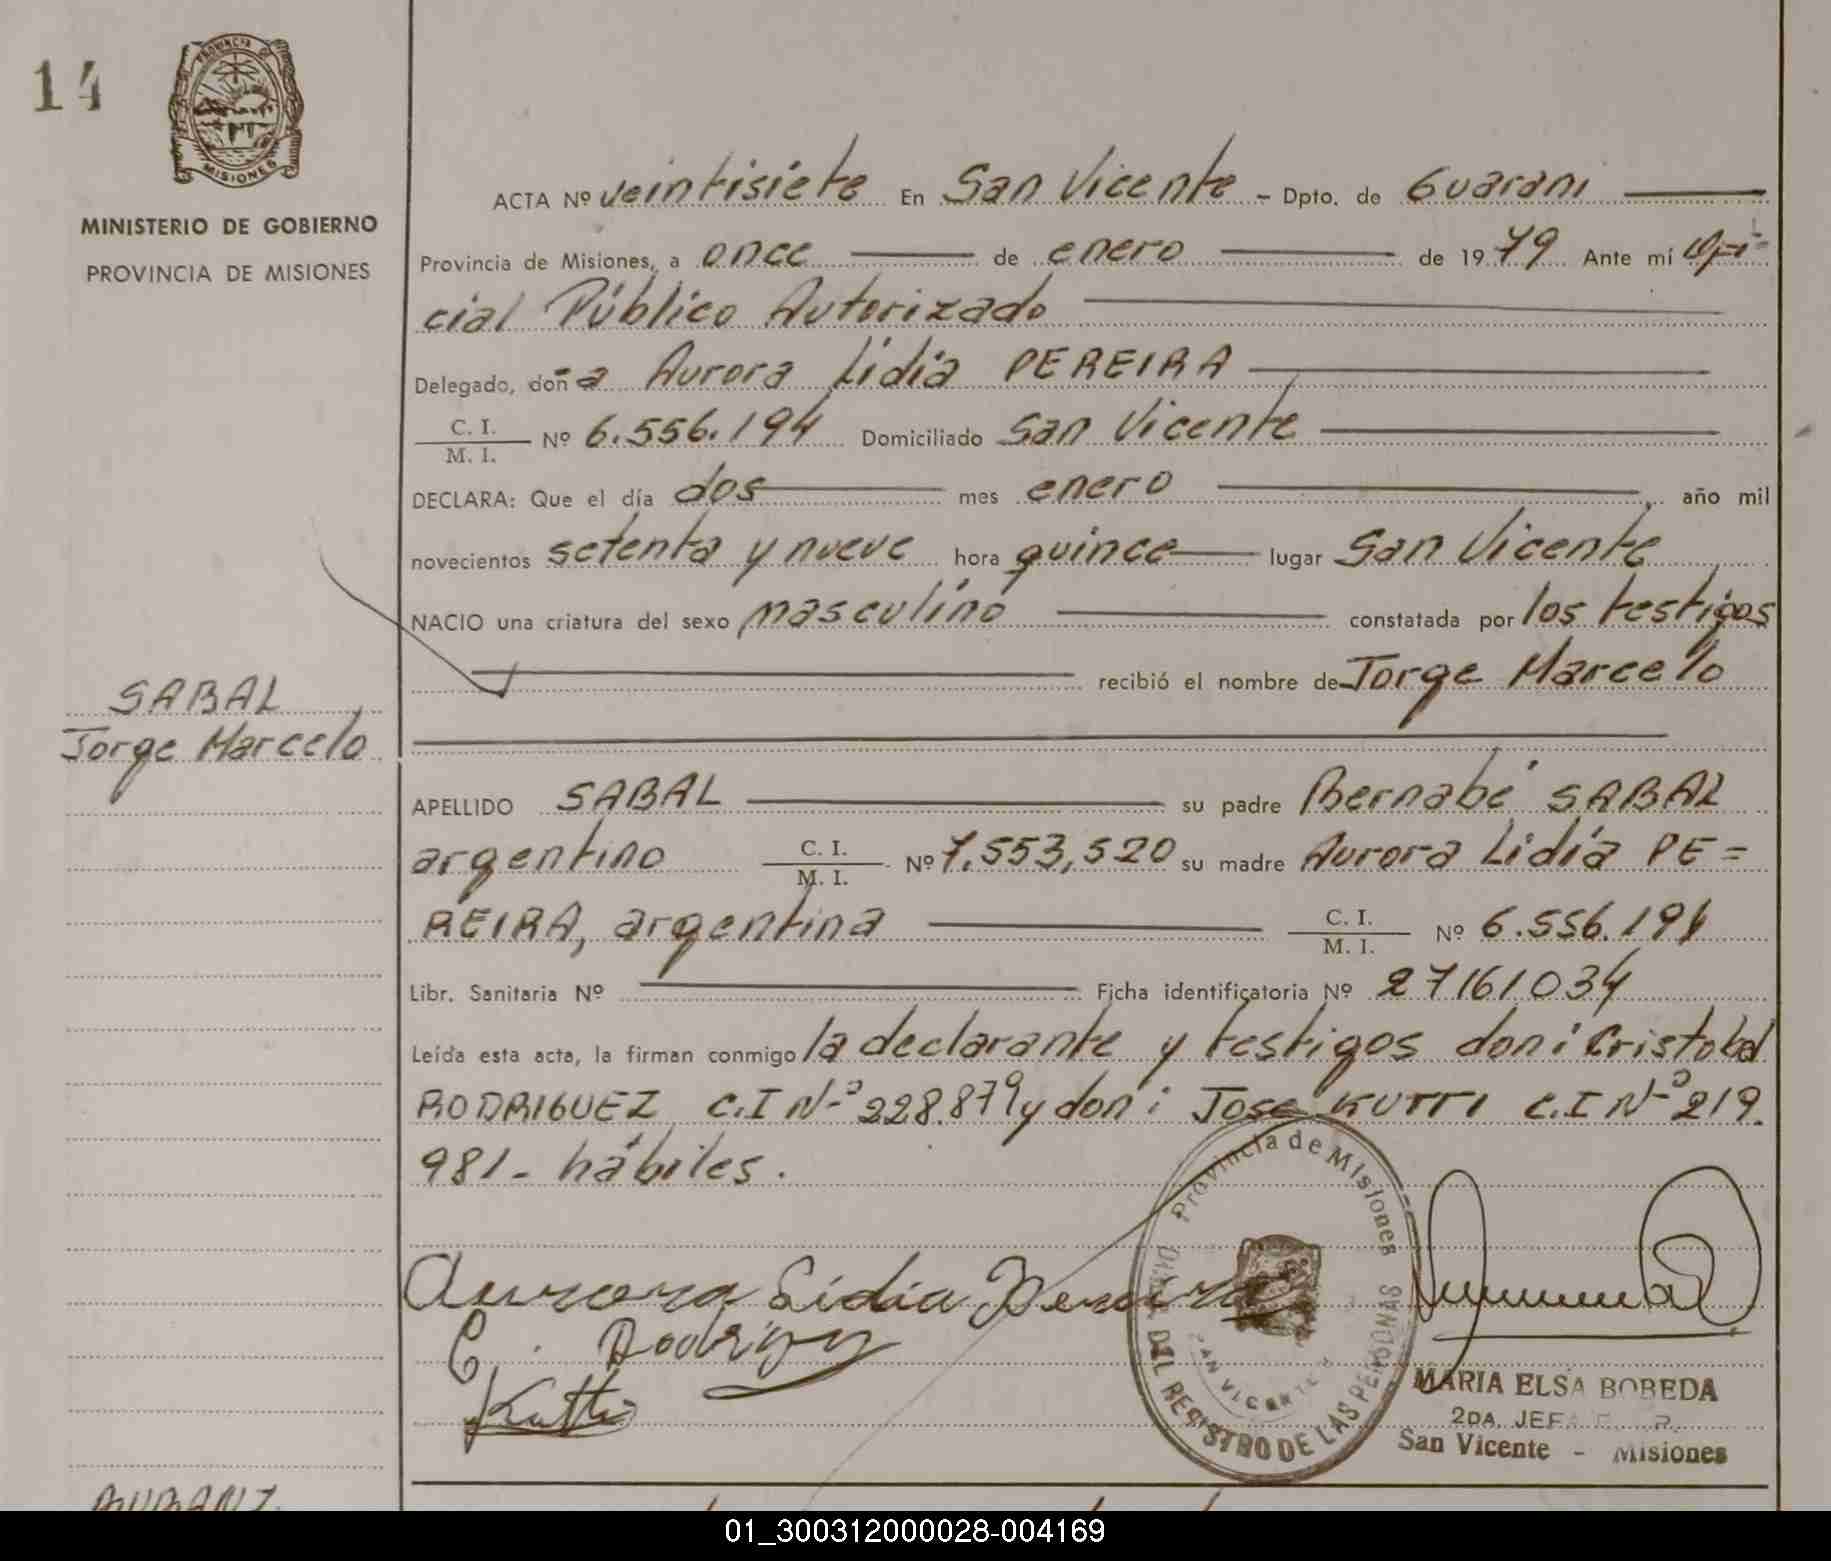 14
PROVINCIA DE
MISIONES
MINISTERIO DE GOBIERNO
PROVINCIA DE MISIONES
ACTA Nº veintisiete En San Vicente - Dpto. de Guarani
Provincia de Misiones, a once de enero de 1979 Ante mí Ofi-
cial Público Autorizado
Delegado, doña Aurora Lidia PEREIRA
C. I.
M. I. Nº 6.556.194 Domiciliado San Vicente
DECLARA: Que el día dos mes enero año mil
novecientos setenta y nueve hora quince lugar San Vicente
NACIO una criatura del sexo masculino constatada por los testigos
recibió el nombre de Jorge Marcelo
SABAL
Jorge Marcelo
APELLIDO SABAL su padre Bernabé SABAL
argentino C. I.
M. I. Nº 7.553,520 su madre Aurora Lidia PE=
REIRA, argentina C. I.
M. I. Nº 6.556.194
Libr. Sanitaria Nº Ficha identificatoria Nº 27161034
Leída esta acta, la firman conmigo la declarante y testigos don: Cristobal
RODRIGUEZ C.I Nº 228.879 y don: Jose KUTTI C.I Nº 219.
981- hábiles.
Aurora Lidia Pereira
C. Rodriguy
Kutti
Provincia de Misiones
DEL REGISTRO DE LAS PERSONAS
SAN VICENTE
MARIA ELSA BOBEDA
2DA. JEFA
San Vicente - Misiones
01_300312000028-004169